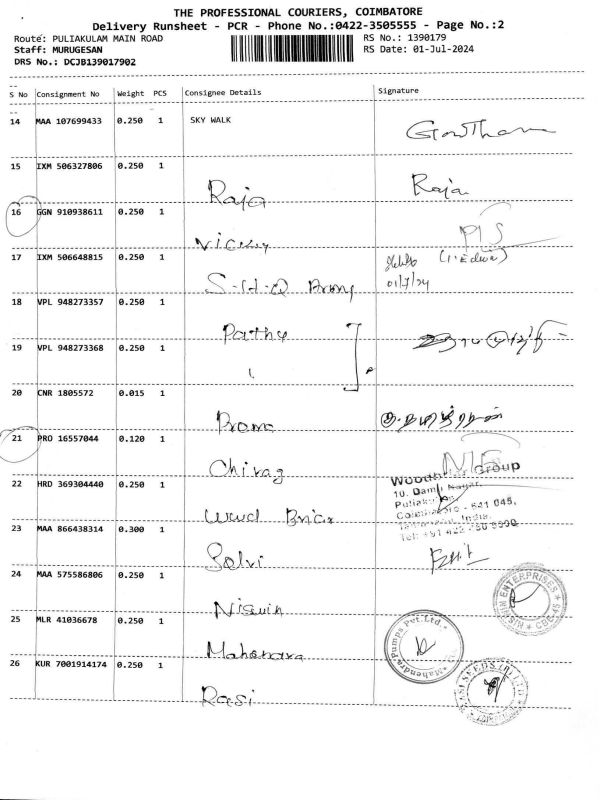 THE PROFESSIONAL COURIERS, COIMBATORE
Delivery Runsheet - PCR - Phone No.:0422-3505555 - Page No.:2
Route: PULIAKULAM MAIN ROAD RS No.: 1390179
Staff: MURUGESAN RS Date: 01-Jul-2024
DRS No.: DCJB139017902
S No Consignment No Weight PCS Consignee Details Signature
14 MAA 107699433 0.250 1 SKY WALK
15 IXM 506327806 0.250 1
Raja Raja
16 GGN 910938611 0.250 1
Vicky
17 IXM 506648815 0.250 1
01/7/24
18 VPL 948273357 0.250 1
Pathy
19 VPL 948273368 0.250 1
20 CNR 1805572 0.015 1
21 PRO 16557044 0.120 1
Chirag
22 HRD 369304440 0.250 1
Group
10.
23 MAA 866438314 0.300 1
Selvi
24 MAA 575586806 0.250 1
ENTERPRISES
25 MLR 41036678 0.250 1
Mahendra Pumps Pvt.Ltd.
26 KUR 7001914174 0.250 1
Rasi